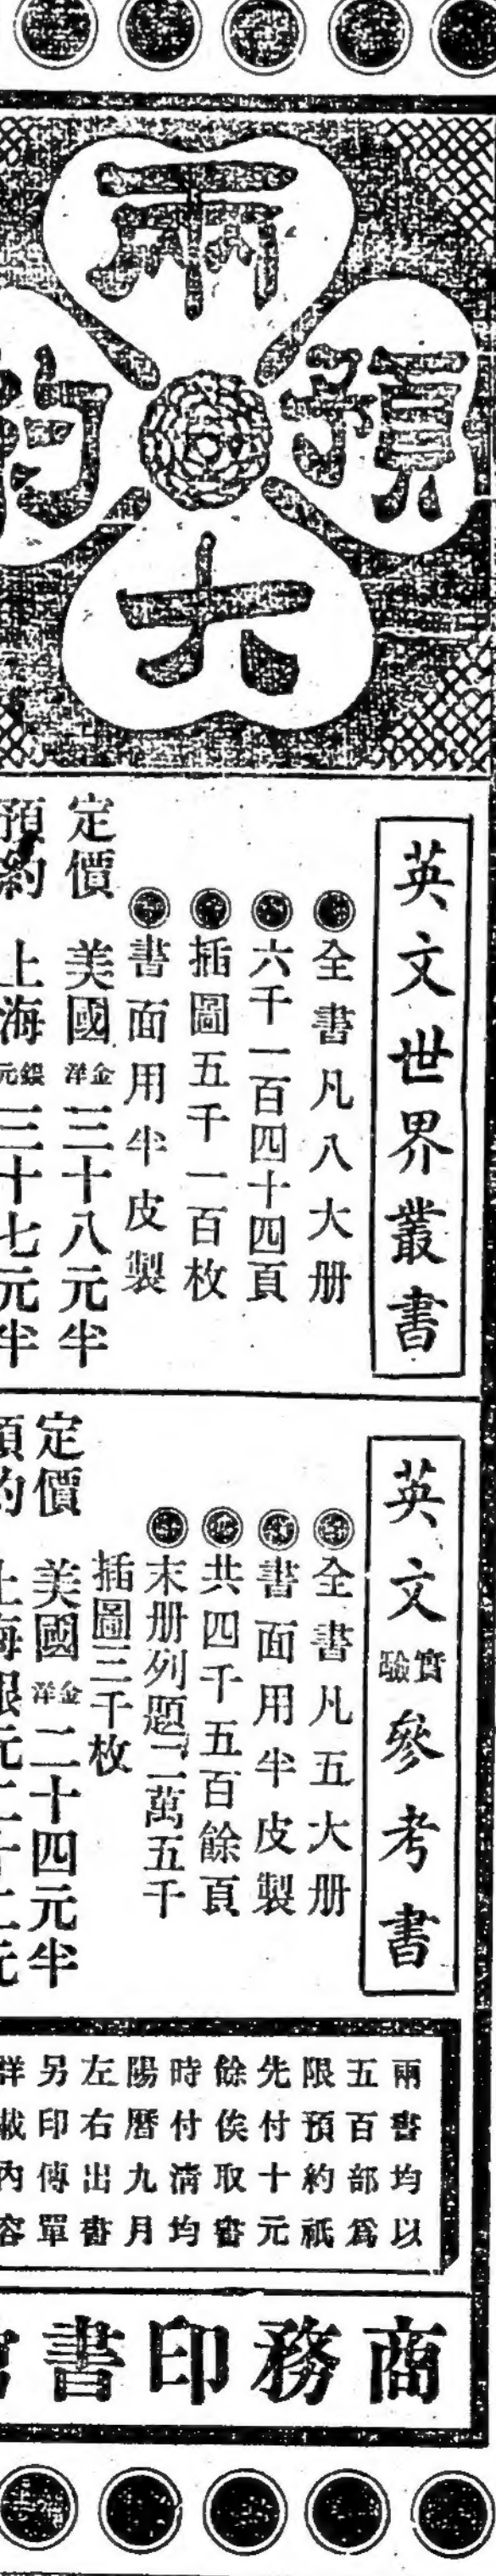 兩大預約
英文世界叢書
全書凡八大册
六千一百四十四頁
插圖五千一百枚
書面用半皮製
定價 美國金洋三十八元半
預約 上海銀元三十七元半
英文實驗參考書
全書凡五大册
書面用半皮製
共四千五百餘頁
末册列題二萬五千
插圖三千枚
定價 美國金洋二十四元半
預約 上海銀元二十二元
兩書均以
五百部爲
限預約祇
先付十元
餘俟取書
時付清均
陽曆九月
左右出書
另印傳單
詳載內容
商務印書館